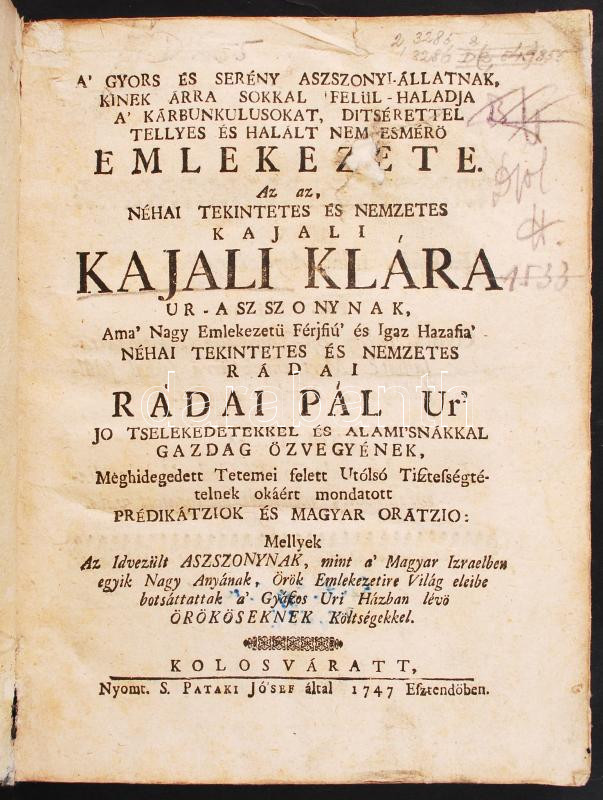 2, 3285 2
3286
A' GYORS ÉS SERÉNY ASZSZONYI-ÁLLATNAK,
KINEK ÁRRA SOKKAL FELÜL-HALADJA
A' KÁRBUNKULUSOKAT, DITSÉRETTEL
TELLYES ÉS HALÁLT NEM ESMÉRÖ
EMLEKEZETE.
Az az,
NÉHAI TEKINTETES ÉS NEMZETES
KAJALI
KAJALI KLÁRA
UR-ASZSZONYNAK,
Ama' Nagy Emlekezetü Férjfiú' és Igaz Hazafia'
NÉHAI TEKINTETES ÉS NEMZETES
RÁDAI
RÁDAI PÁL Ur'
JO TSELEKEDETEKKEL ÉS ALAMI'SNÁKKAL
GAZDAG ÖZVEGYÉNEK,
Meghidegedett Tetemei felett Utólsó Tiſzteſségté-
telnek okáért mondatott
PRÉDIKÁTZIOK ÉS MAGYAR ORATZIO:
Mellyek
Az Idvezült ASZSZONYNAK, mint a' Magyar Izraelben
egyik Nagy Anyának, Örök Emlekezetire Világ eleibe
botsáttattak a' Gyászos Uri Házban lévö
ÖRÖKÖSEKNEK Költségekkel.
KOLOSVÁRATT,
Nyomt. S. PATAKI JÓ'SEF által 1747 Eſztendöben.
1533
darabanth